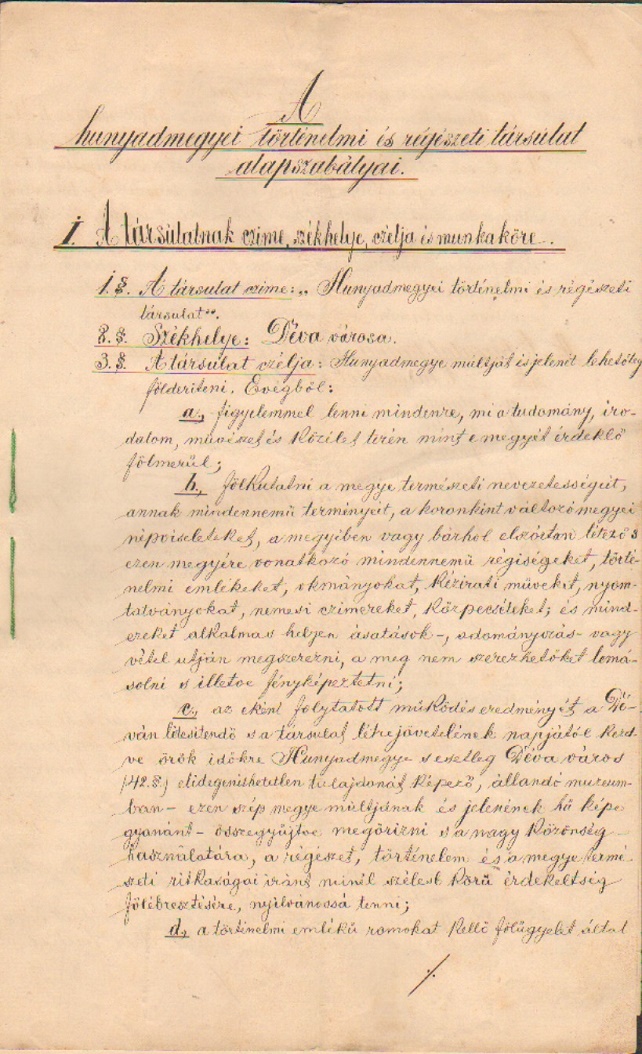 A
hunyadmegyei történelmi és régészeti társulat
alapszabályai.
I. A társulatnak czime, székhelye, czélja és munkaköre.
1. §. A társulat czime: „Hunyadmegyei történelmi és régészeti
társulat".
2. §. Székhelye: Déva városa.
3. §. A társulat czélja: Hunyadmegye múltját és jelenét lehetőleg
földeriteni. Evégből:
a., figyelemmel lenni mindenre, mi a tudomány, iro-
dalom, művészet és közélet terén mint e megyét érdeklő
fölmerül;
b., fölkutatni a megye természeti nevezetességeit,
annak mindennemű terményeit, a koronkint változó megyei
népviseleteket, a megyében vagy bárhol elszórtan létező s
ezen megyére vonatkozó mindennemű régiségeket, törté-
nelmi emlékeket, okmányokat, kézirati műveket, nyom-
tatványokat, nemesi czimereket, közpecséteket; és mind-
ezeket alkalmas helyen ásatások-, adományozás- vagy
vétel utján megszerezni, a meg nem szerezhetőket lemá-
solni s illetve fényképeztetni;
c., az eként folytatott működés eredményét a Dé-
ván létesitendő s a társulat létrejövetelének napjától kezd-
ve örök időkre Hunyadmegye s esetleg Déva város
(42. §.) elidegenithetetlen tulajdonát képező, állandó muzeum-
ban - ezen szép megye múltjának és jelenének hű képe
gyanánt - összegyűjtve megőrizni s a nagy közönség
használatára, a régészet, történelem és a megye termé-
szeti ritkaságai iránt minél szélesb körű érdekeltség
fölébresztésére, nyilvánossá tenni;
d., a történelmi emlékű romokat kellő fölügyelet által
./.